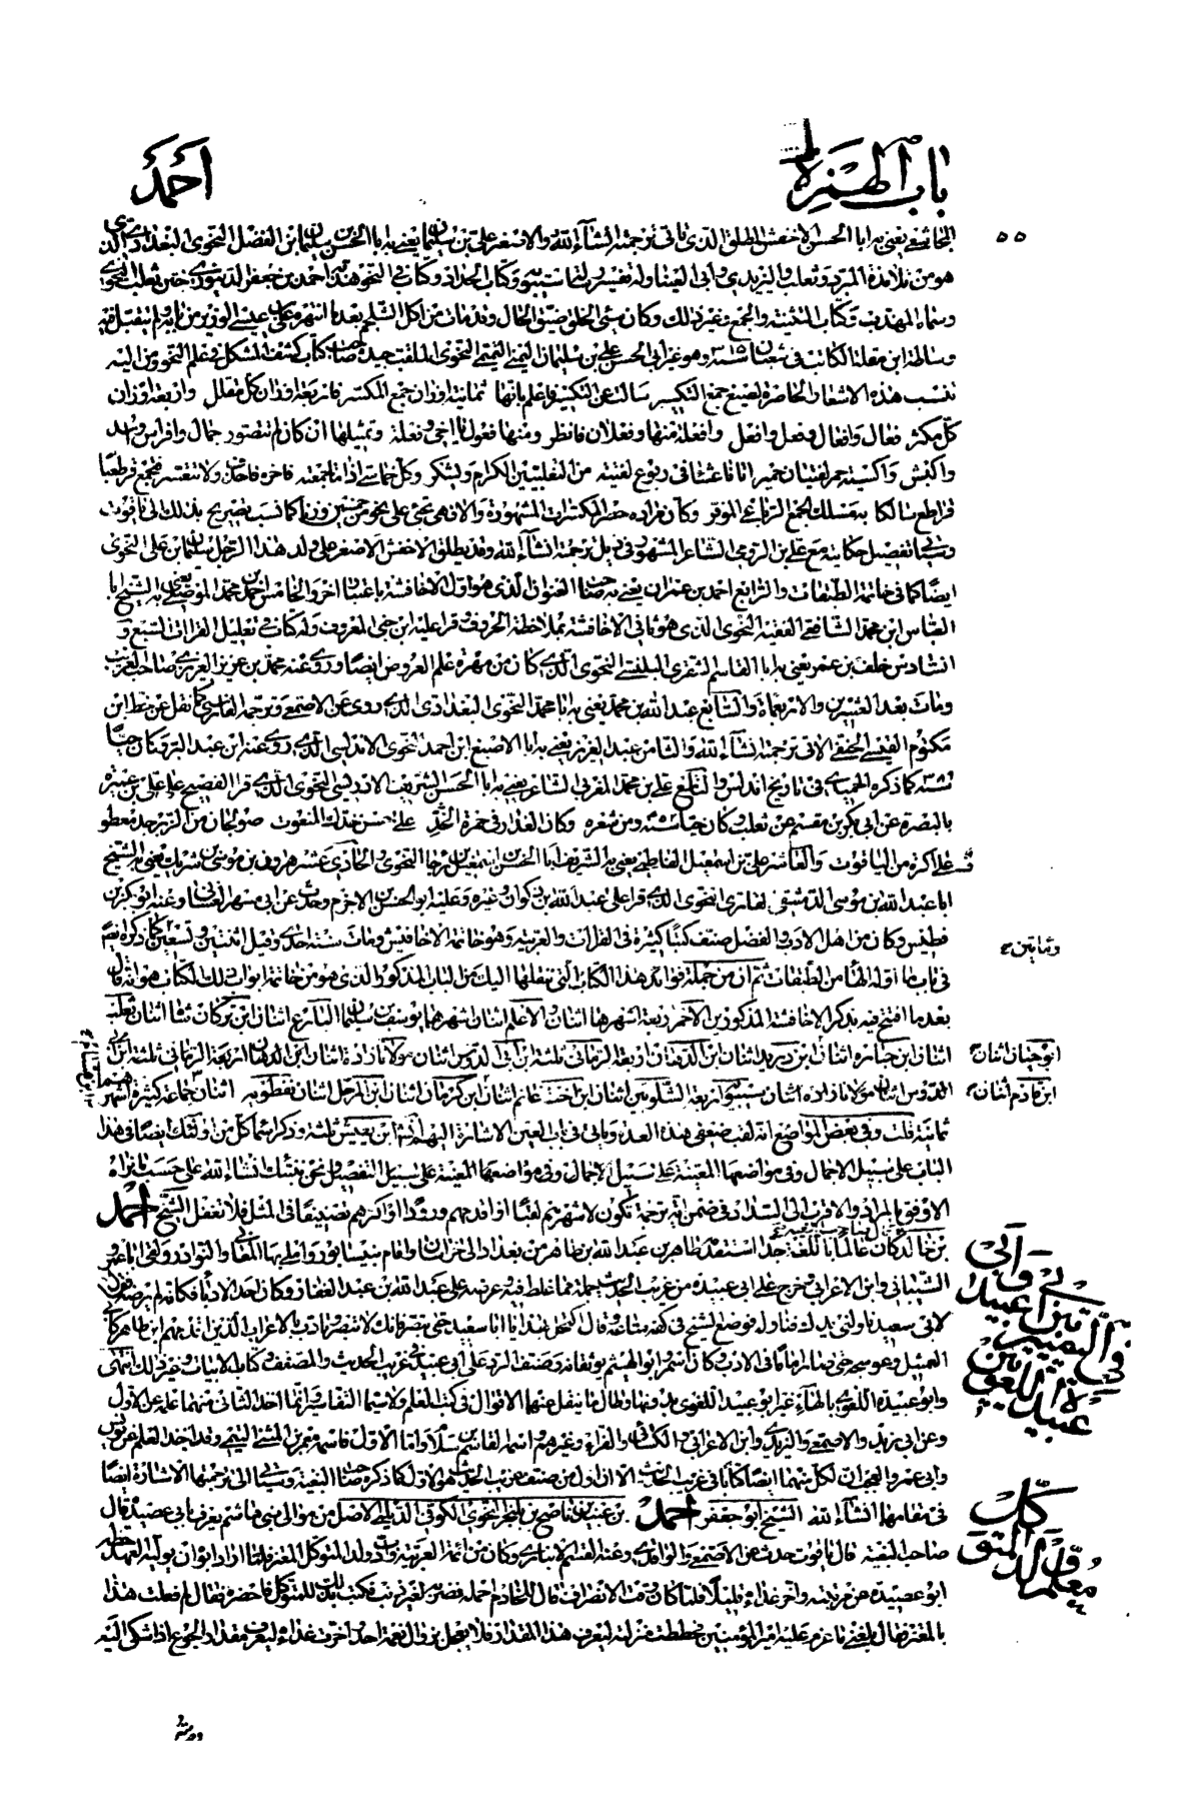 باب الهمزة
احمد
٥٥
المجاشعي يعني به ابا الحسن الاخفش المطلق الذي ياتي ترجمته انشآء الله والاصغر علي بن سليمان يعني به ابا الحسن بن سليمان ابن الفضل النحوي البغدادي الذي
هو من تلامذة المبرد وثعلب واليزيدي وابي العينا وله تفسير كتاب سيبويه وكتاب الحداد وكتاب في النحو هذبه احمد بن جعفر الدينوري ختن ثعلب النحوي
وسماه المهذب وكتاب التثنية والجمع وغير ذلك وكان سيئ الخلق ضيق الحال وقد مات من اكل الشلجم بعد ما انتهره علي بن عيسى الوزير من بابه ولم يتقبل فيه
وساطة ابن مقلة الكاتب في شعبان سنة ٣١٥ وهو غير ابي الحسن علي بن سليمان اليمني التميمي النحوي الملقب حيدة صاحب كتاب كشف المشكل في علم النحو ومن اليه
تنسب هذه الاشعار الحاضرة لصيغ جمع التكسير سالت عن التكسير فاعلم بانها ثمانية اوزان جمع المكسر فاربعة اوزان كل مقلل واربعة اوزان
كل مكثر فعال وافعال وفعل وافعل وافعلة منها وفعلان فانظر ومنها فعول يا اخي وفعلة وتمثيلها ان كان لم تتصور جمال وافراس واسد
واكبش واكسية حمر لفتيان حمير انا فاعثنا في ربوع لفتية من التغلبيين الكرام ويشكر وكل خماسي اذا ما جمعته فاخره فاحذف ولا تتعسر فتجمع قرطعبا
قراطع سالكا به مسلك الجمع الرباعي الموقر وكان مراده حصر المكسرات المشهورة والا فهي تجئ على نحو من خمسين وزنا كما نسب تصريح بذلك الى ياقوت
وسياتي تفصيل حكايته مع علي بن الرومي الشاعر المشهور في ذيل ترجمته انشآء الله وقد يطلق الاخفش الاصغر على ولد هذا الرجل سليمان بن علي النحوي
ايضا كما في خاتمة الطبقات والرابع احمد بن عمران يعني به صاحب العنوان الذي هو اول الاخافشة باعتبار اخر والخامس احمد بن محمد الموصلي يعني به الشيخ ابا
العباس ابن محمد الشافعي الفقيه النحوي الذي هو ثاني الاخافشة بملاحظة الحروف قرا عليه ابن جني المعروف وله كتاب في تعليل القراات السبع و
السادس خلف بن عمر يعني به ابا القاسم الشقري البلنسي النحوي الذي كان من مهرة علم العروض ايضا وروى عنه محمد بن عزيز العزيزي صاحب الغريب
ومات بعد الستين والاربعمائة والسابع عبد الله بن محمد يعني به ابا محمد النحوي البغدادي الذي روى عن الاصمعي وترجمه الفارسي كما نقل عن خط ابن
مكتوم القيسي الحنفي الاتي ترجمته انشآء الله والثامن عبد العزيز يعني به ابا الاصبغ ابن احمد النحوي الاندلسي الذي روى عنه ابن عبد البر وكان حيا
كما ذكره الحميدي في تاريخ اندلس والتاسع علي بن محمد المغربي الشاعر يعني به ابا الحسن الشريف الادريسي النحوي الذي قرا الفصيح على علي بن عميرة
بالبصرة عن ابي بكر بن مقسم عن ثعلب وكان حيا ومن شعره وكان العذار في حمرة الخد على حسن خدك المنعوت صولجان من الزبرجد معطو
ف على اكرة من الياقوت والعاشر علي بن اسمعيل الفاطمي يعني به الشريف ابا الحسن ابن اسمعيل بن رجا النحوي والحادي عشر هرون بن موسى بن شريك يعني به الشيخ
ابا عبد الله بن موسى الدمشقي القارئ النحوي الذي قرا على عبد الله بن ذكوان وغيره وعليه ابو الحسن بن الاخرم وحدث عن ابي مسهر الغساني وعنه ابو بكر بن
فطيس وكان من اهل الادب والفضل صنف كتبا كثيرة في القراات والعربية وهو خاتمة الاخافيش ومات سنة احدى وقيل اثنتين وتسعين كما ذكره ايضا
ومائتين
في باب الهاء من الطبقات ثم ان من جملة فوائد هذا الكتاب التي ننقلها اليك من الباب المذكور الذي هو من خاتمة ابواب ذلك الكتاب هو انه قال
بعد ما افتتح فيه بذكر الاخافشة المذكورين الاحمر اربعة اشهرها اثنان والاعلم اثنان اشهرهما يوسف بن سليمان البارع اثنان ابن بركات اثنان ثعلب
اثنان ابن جبارة اثنان ابن دريد اثنان ابن الدهان اربعة الرماني ثلثة ابن ابي الدوس اثنان
ابو حيان اثنان
ابن خادم اثنان
سيبويه اربعة الشلوبين اثنان ابن اخت غانم اثنان ابن كرمان اثنان ابن المرحل اثنان نفطويه اثنان جماعة كثيرة اشهرهم
ثمانية قلت وفي بعض المواضع انه لقب ضعفي هذه العدة وياتي في باب العين الاشارة اليهم انشاء ابن يعيش ثلثة وذكر اسماء كل من اولئك ايضا في هذا
الباب على سبيل الاجمال وفي مواضعها المعينة على سبيل الاجمال وفي مواضعها المعينة على سبيل التفصيل ونحن نعتنك انشاء الله على حسب ما نراه
الاوفق بالمرام والاقرب الى السداد في ضمن اية ترجمة تكون لاشهرهم لقبا او اقدمهم ورودا او اكثرهم تصنيفا في المثل فلا تغفل الشيخ احمد
بن خالد كان عالما باللغة جدا استقدمه طاهر بن عبد الله بن طاهر من بغداد الى خراسان واقام بنيسابور واملى بها المعاني والنوادر ولقي ابا عمرو
الشيباني وابن الاعرابي وخرج على ابي عبيدة من غريب الحديث جملة مما غلط فيه وعرضه على عبد الله ابن عبد الغفار وكان احد الادبا فكانه لم يرضه فقال
لابي سعيد ناولني يدك فناوله فوضع الشيخ في كفه متاعه وقال اكتحل بهذا يا ابا سعيد حتى تبصر فانك لا تبصر وتادب بالاعراب الذين اقدمهم ابن طاهر كابي
العميثل وعوسجة حتى صار اماما في الادب وكان شمر وابو الهيثم يوثقانه وصنف الرد على ابي عبيد في غريب الحديث والمصنف وكتاب الابيات وغير ذلك انتهى
في التمييز بين ابي عبيدة وابي عبيد اللغويين
وابو عبيدة اللغوي بالهآء غير ابو عبيد اللغوي بدونها وطال ما ينقل عنهما الاقوال في كتب العلم ولا سيما التفاسير وانما اخذ الثاني منهما علمه عن الاول
وعن ابي زيد والاصمعي واليزيدي وابن الاعرابي والكسائي والفراء وغيرهم واسمه القاسم بن سلام واما الاول فاسمه معمر بن المثنى التيمي وقد اخذ العلم عن يونس
وابي عمرو والعجب ان لكل منهما ايضا كتابا في غريب الحديث الا ان اول من صنف غريب الحديث هو الاول كما ذكره صاحب البغية وسياتي الى ترجمتهما الاشارة ايضا
في مقامهما انشآء الله الشيخ ابو جعفر احمد بن عبيد بن ناصح بن بلنجر النحوي الكوفي الديلمي الاصل من موالي بني هاشم يعرف بابي عصيدة قال
معلم اولاد المتوكل
صاحب البغية قال ياقوت حدث عن الاصمعي والواقدي وعنه القاسم الانباري وكان من ائمة العربية وادب ولد المتوكل المعتز فلما اراد ابوه ان يوليه العهد حطه
ابو عصيدة عن مرتبته واخر غذاءه قليلا فلما كان وقت الانصراف قال للخادم احمله فضربه لغير ذنب فكتب بذلك للمتوكل فاحضره فقال لم فعلت هذا
بالمعتز فقال بلغني ما عزم عليه امير المؤمنين فحططت منزلته ليعرف هذا المقدار فلا يعجل بزوال نعمة احد واخرت غذاءه ليعرف مقدار الجوع اذا شكي اليه